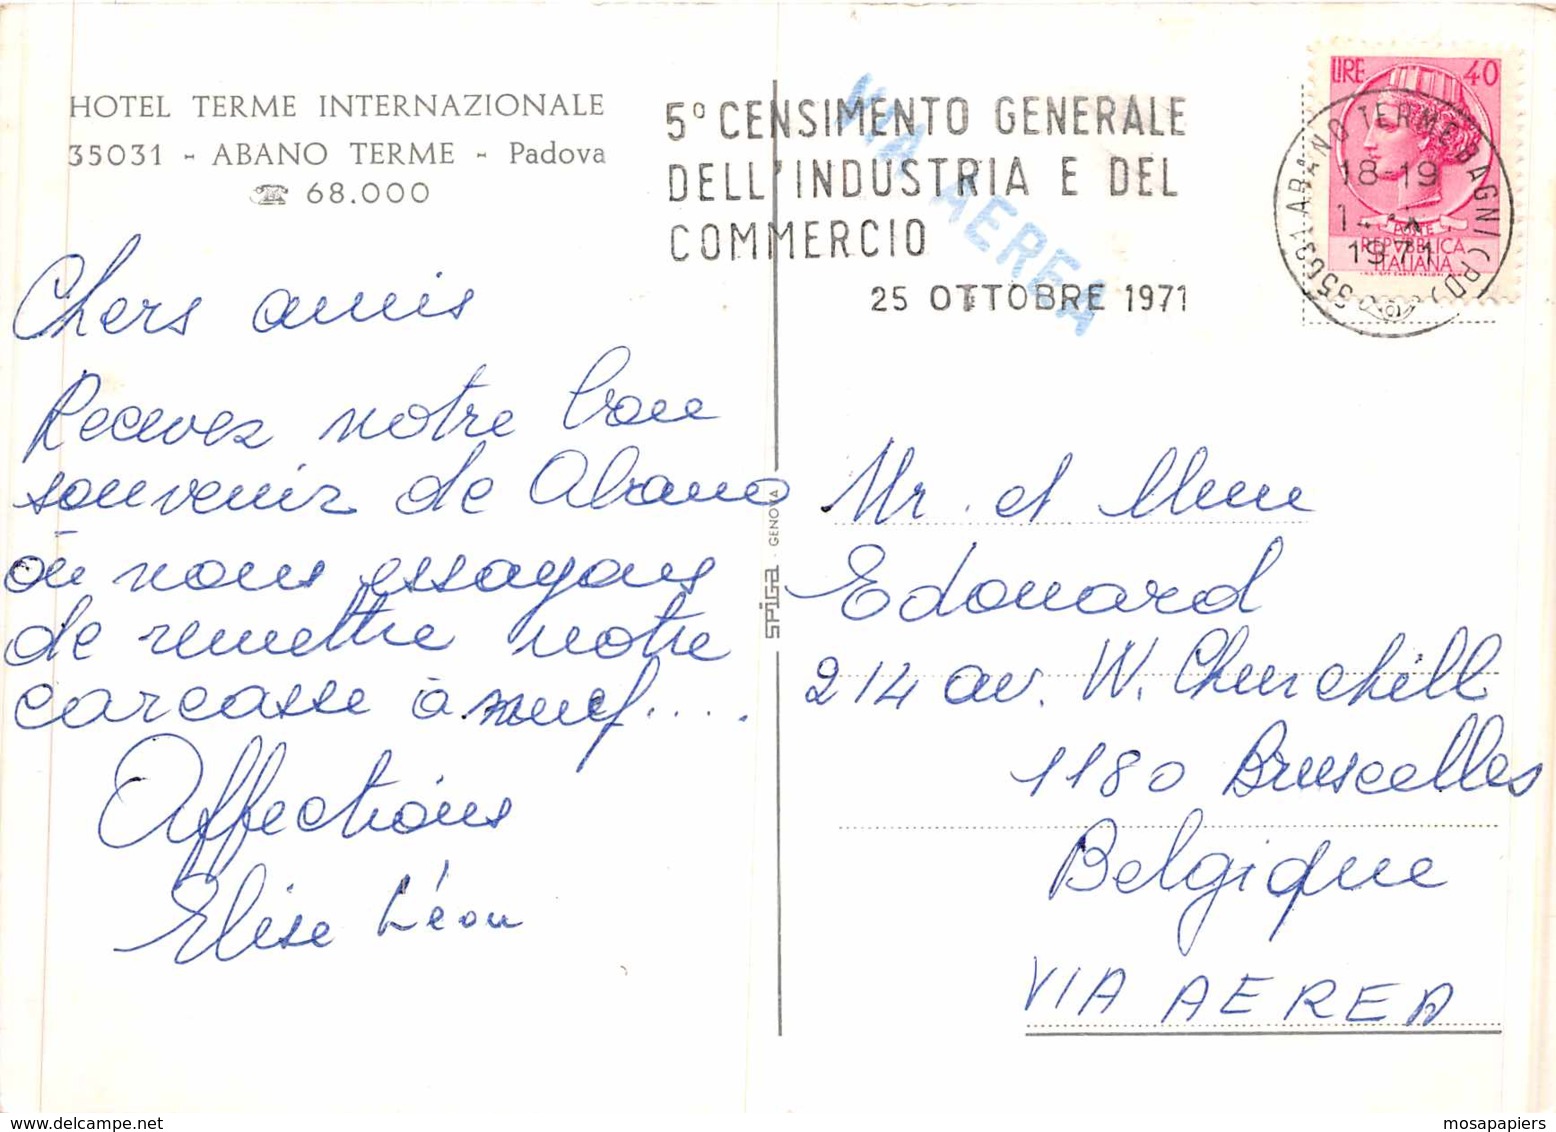 HOTEL TERME INTERNAZIONALE
35031 - ABANO TERME - Padova
☎ 68.000
Chers amis
Recevez notre bon
souvenir de Abano
où nous essayons
de remettre notre
carcasse à neuf....
Affections
Elise Léon
SPIGA - GENOVA
5° CENSIMENTO GENERALE
DELL'INDUSTRIA E DEL
COMMERCIO
25 OTTOBRE 1971
VIA AEREA
LIRE 40
POSTE
REPVBBLICA
ITALIANA
35031 ABANO TERME BAGNI (PD)
18-19
1971
Mr. et Mme
Edouard
214 av. W. Churchill
1180 Bruscelles
Belgique
VIA AEREA
mosapapiers